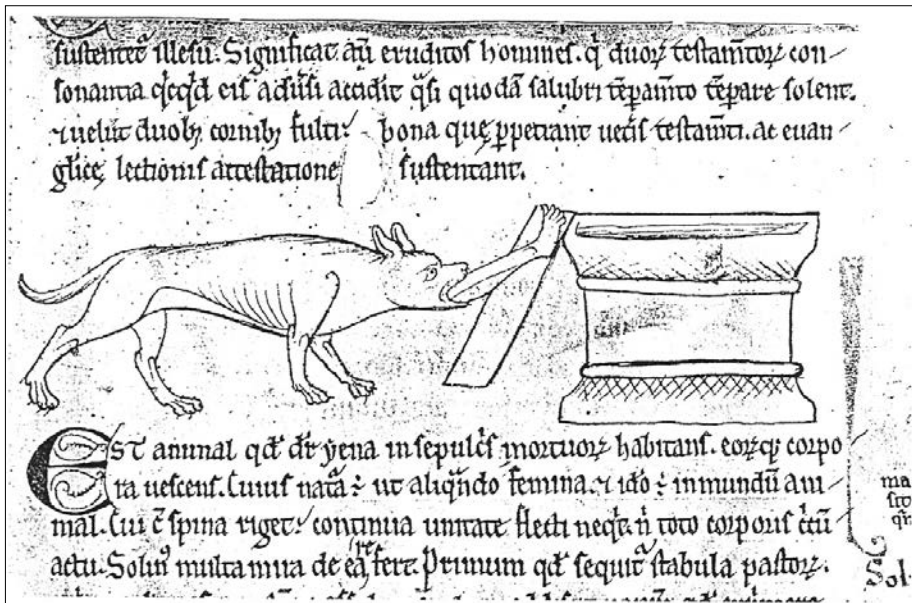 sustentet̃ illesũ. Significat aũ eruditos homines. q̇ duoꝝ testam̃toꝝ con
sonantia qͥcqͥd eis adũsi accidit q̃si quodã salubri tẽpam̃to tẽpare solent.
⁊ uelut duobꝫ cornibꝫ fulti bona quę ꝑpetrant uet̃is testam̃ti. ac euan
glicę lectionis attestatione sustentant.
EST animal qd̃ dr̃ yena in sepulcͥs mortuoꝝ habitans. eoꝝqꝫ corpo
ra uescens. Cuius nat̃a ÷ ut aliq̃ndo femina. ⁊ idõ ÷ inmundũ ani
mal. Cui c̃ spina riget. continua unitate flecti neqͥt. ñ toto corporis cͥcũ
actu. Solinꝰ multa mira de ea refert. Primum qd̃ sequit̃ stabula pastoꝝ.
ma
sit
Sol